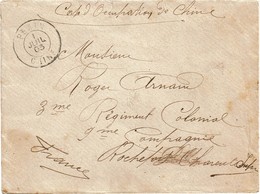 Corps d'Occupation de Chine
PEKIN
JUIL
03
CHINE
Monsieur
Roger Arnaud
3me Régiment Colonial
9me Compagnie
Rochefort Charente Infre
France